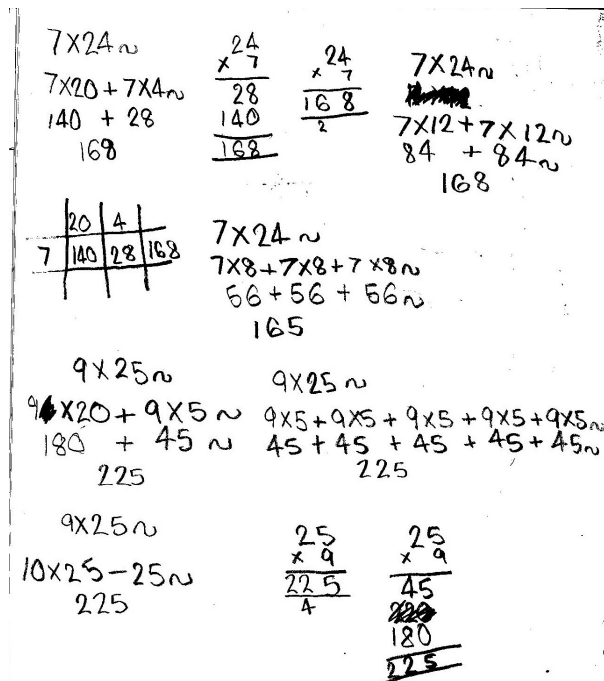 7×24~
7×20+7×4~
140 + 28
168
24
× 7
28
140
168
24
× 7
168
2
7×24~
7×12+7×12~
84 + 84~
168
20 4
7 140 28 168
7×24~
7×8+7×8+7×8~
56+56+56~
165
9×25~
9×20+9×5~
180 + 45~
225
9×25~
9×5+9×5+9×5+9×5+9×5~
45+45+45+45+45~
225
9×25~
10×25-25~
225
25
× 9
225
4
25
× 9
45
180
225